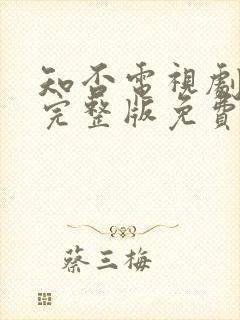 知否電視劇
完整版免費
蔡三梅